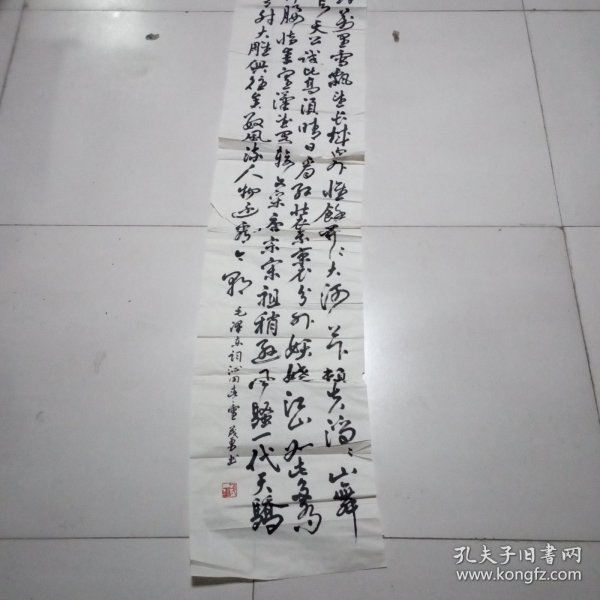 萬里雪飄望长城内外惟餘莽〻大河上下頓失滔〻山舞
天公試比高須晴日看红裝素裹分外妖娆江山如此多嬌
腰惜秦皇漢武略輸文采唐宗宋祖稍逊风騷一代天驕
射大雕俱往矣數風流人物还看今朝
毛泽东词沁园春雪
孔夫子旧书网
www.kongfz.com